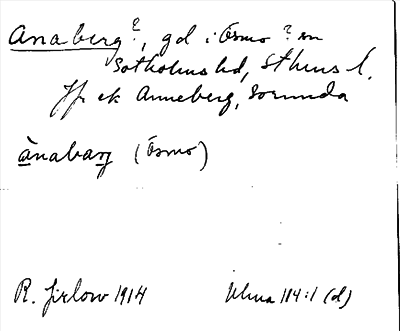 Anaberg?, gd i Ösmo ? sn
Sotholms hd, Sthms l.
Jfr ek Anneberg, Sorunda
ànabarg (Ösmo)
R. Jirlow 1914 Ulma 114:1 (d)